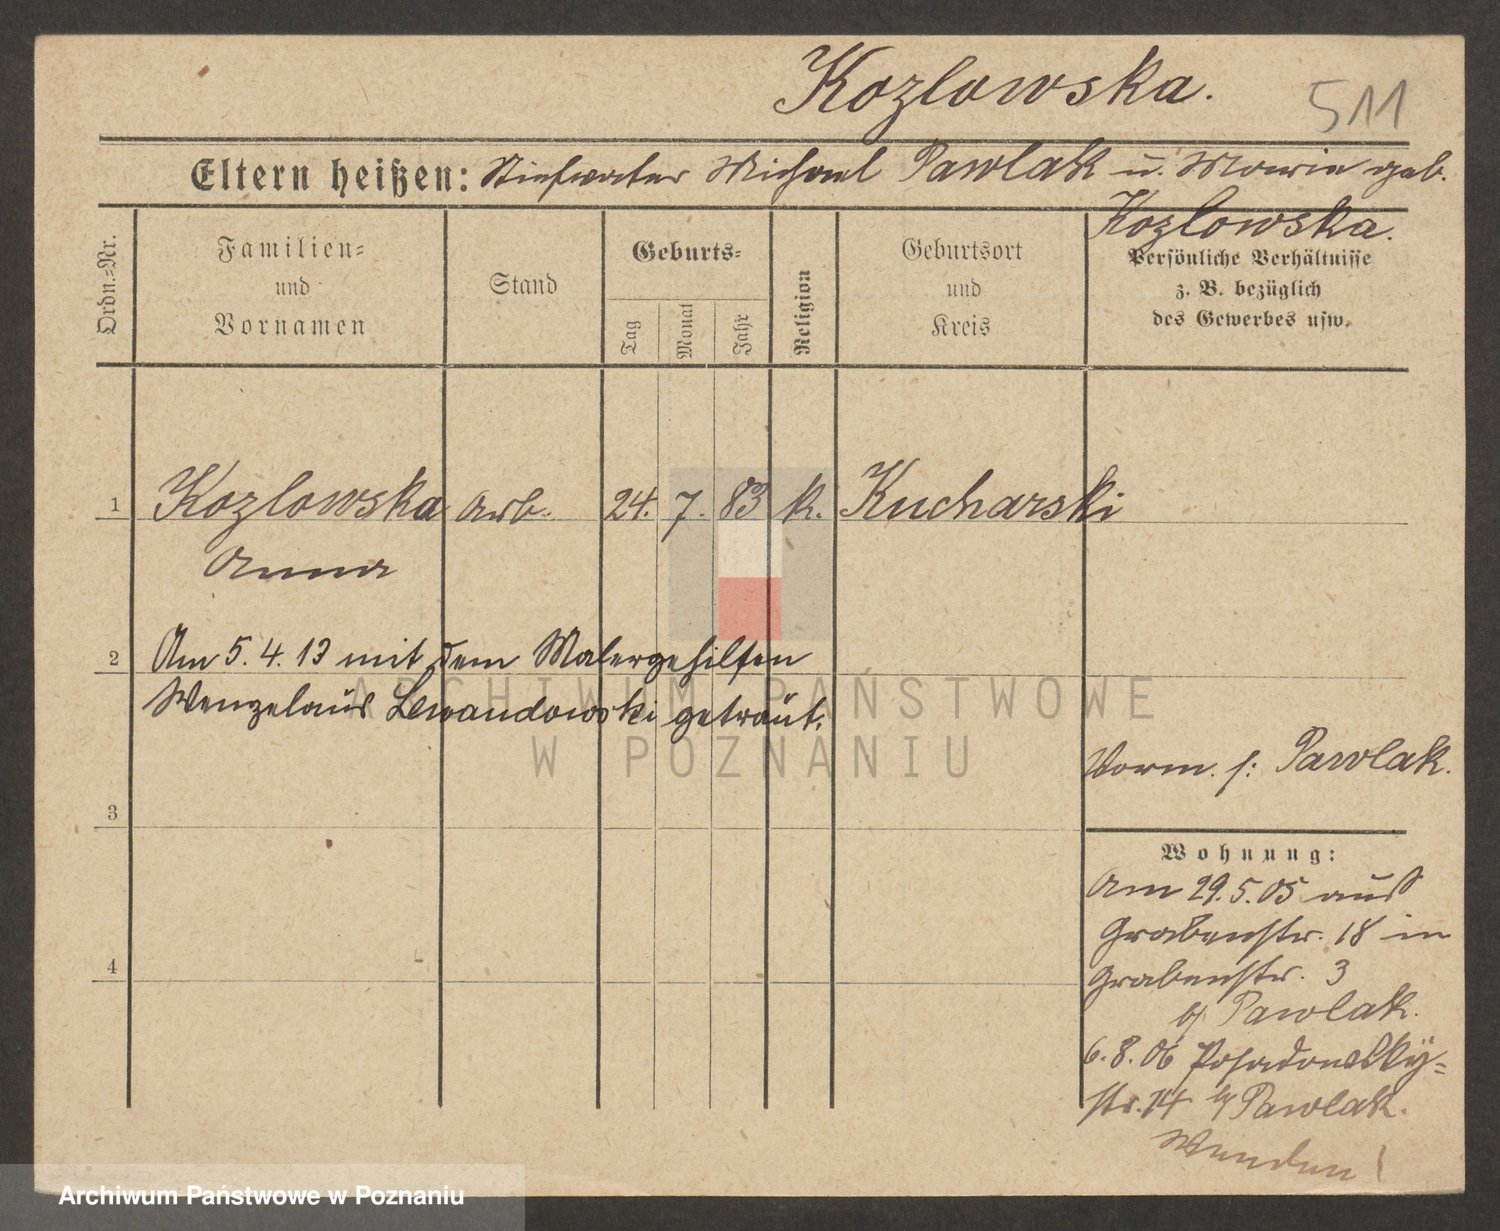 Kozlowska.
511
Eltern heißen: Stiefvater Michael Pawlak u. Marie geb.
Kozlowska.
Ordn.=Nr.
Familien=
und
Vornamen
Stand
Geburts=
Tag
Monat
Jahr
Religion
Geburtsort
und
Kreis
Persönliche Verhältnisse
z. B. bezüglich
des Gewerbes usw.
1 Kozlowska Arb. 24. 7. 83 k. Kucharski
Anna
2 Am 5.4.13 mit dem Malergehilfen
Wenzelaus Lewandowski getraut.
Vorm. s: Pawlak.
3
Wohnung:
Am 29.5.05 aus
Grabenstr. 18 in
Grabenstr. 3
4
b/ Pawlak.
6.8.06 Posadowsky=
str. 14 b/ Pawlak.
Wenden!
ARCHIWUM PAŃSTWOWE
W POZNANIU
Archiwum Państwowe w Poznaniu